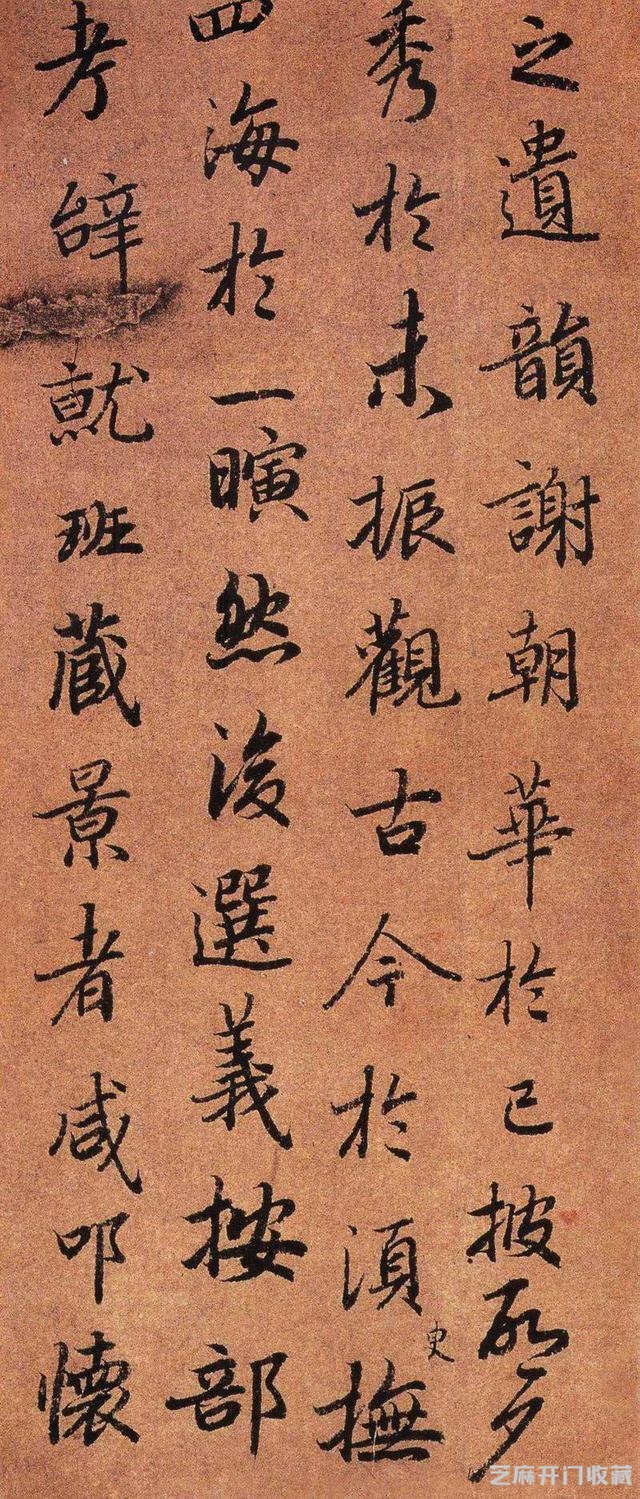 之遺韻謝朝華於已披啓夕
秀於未振觀古今於湏臾撫
四海於一瞚然後選義按部
考辝就班蔵景者咸叩懷
芝麻开门收藏